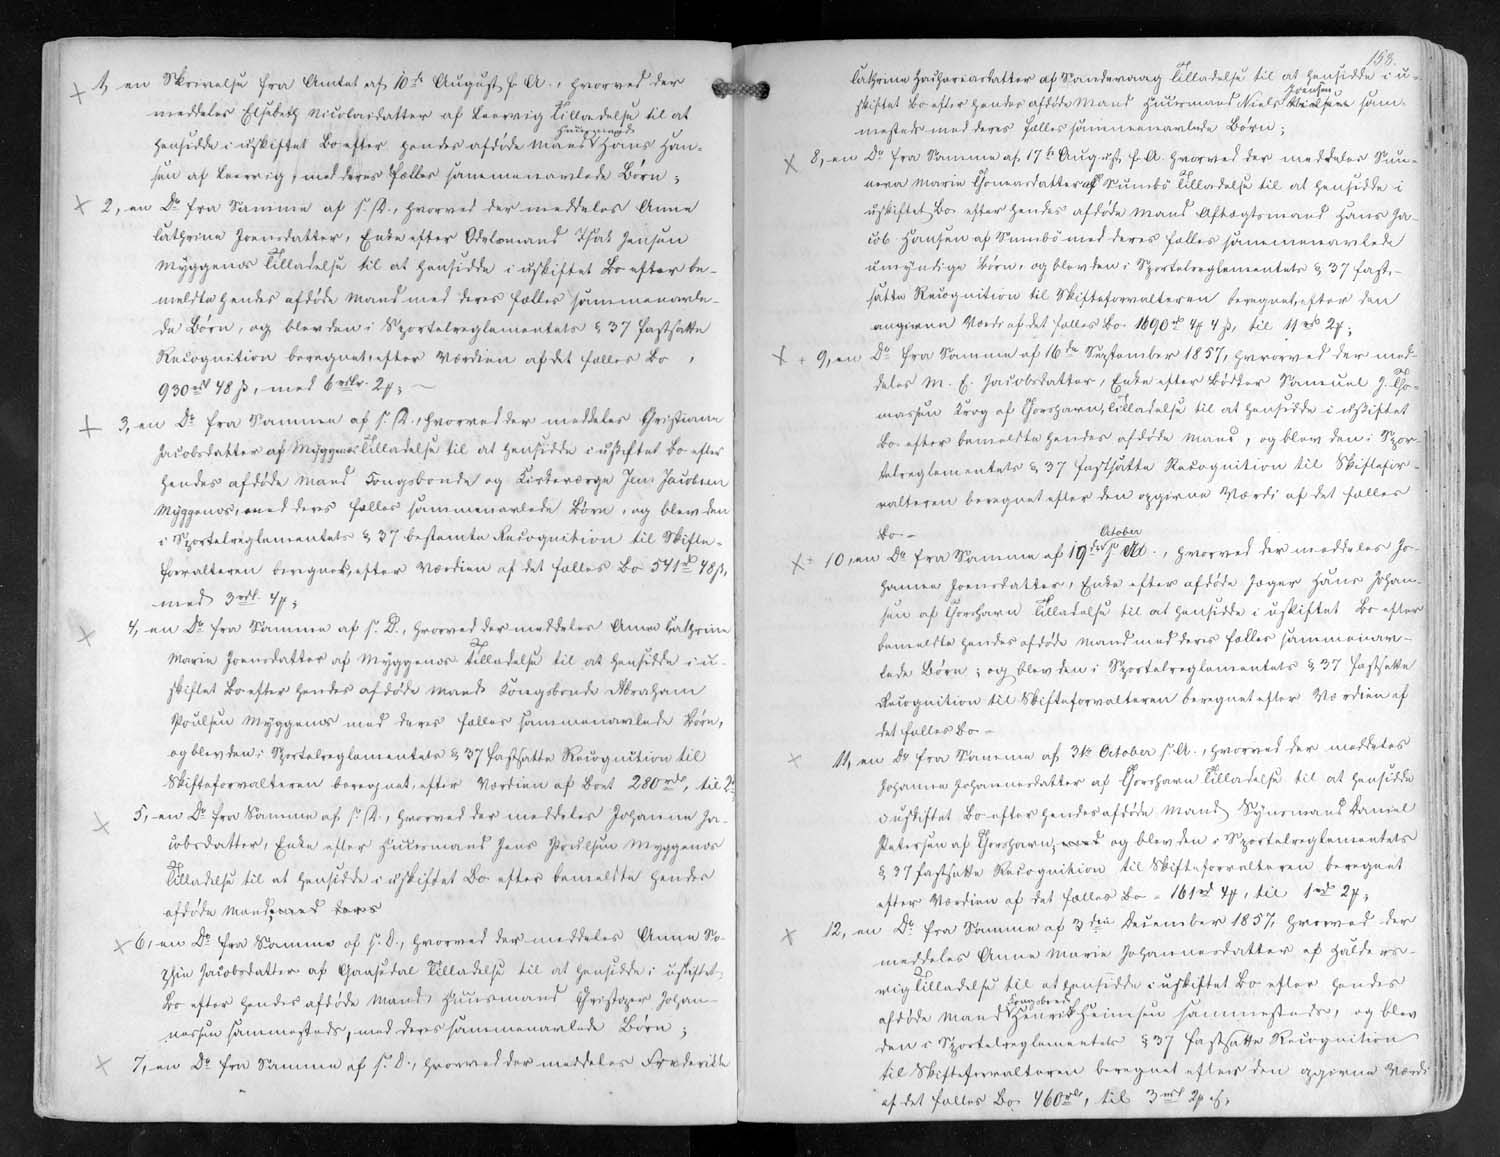 1, en Skrivelse fra Amtet af 10de August f. A., hvorved der
meddeles Elsebeth Nicolaisdatter af Leervig Tilladelse til at
hensidde i uskiftet Bo efter hendes afdøde Mand Huusmand Hans Han-
sen af Leervig, med deres fælles sammenavlede Børn;
2, en Do fra Samme af s. D., hvorved der meddeles Anne
Cathrine Joensdatter, Enke efter Odelsmand Isak Jensen
Myggenæs Tilladelse til at hensidde i uskiftet Bo efter be-
meldte hendes afdøde Mand med deres fælles sammenavle-
de Børn, og blev den i Sportelreglementets § 37 fastsatte
Recognition beregnet, efter Værdien af det fælles Bo,
930 rd 48 ß, med 6 rdlr. 2 ;
3, en Do fra Sammen af s. D., hvorved der meddeles Christiane
Jacobsdatter af Myggenæs Tilladelse til at hensidde i uskiftet Bo efter
hendes afdøde Mand Kongsbonde og Kirkeværge Jens Jacobsen
Myggenæs, med deres fælles sammenavlede Børn, og blev den
i Sportelreglementets § 37 bestemte Recognition til Skifte-
forvalteren beregnet, efter Værdien af det fælles Bo 541 rd 48 ß,
med 3 rdl. 4 ;
4, en Do fra Samme af s. D., hvorved der meddeles Anne Cathrine
Marie Joensdatter af Myggenæs Tilladelse til at hensidde i u-
skiftet Bo efter hendes afdøde Mand Kongsbonde Abraham
Poulsen Myggenæs med deres fælles sammenavlede Børn,
og blev den i Sportelreglementets § 37 fastsatte Recognition til
Skifteforvalteren beregnet, efter Værdien af Boet 280 rd, til 2
5, en Do fra Samme af s. D., hvorved der meddeles Johanne Ja-
cobsdatter, Enke efter Huusmand Jens Poulsen Myggenæs
Tilladelse til at hensidde i uskiftet Bo efter bemeldte hendes
afdøde Mand, med deres
6, en Do fra Samme af s. D., hvorved der meddeles Anne So-
phie Jacobsdatter af Gaasedal Tilladelse til at hensidde i uskiftet
Bo efter hendes afdøde Mand Huusmand Christopher Johan-
nessen sammesteds, med deres sammenavlede Børn;
7, en Do fra Samme af s. D., hvorved der meddeles Frederikke
158.
Cathrine Zachariasdatter af Sandevaag Tilladelse til at hensidde i u-
skiftet Bo efter hendes afdøde Mand Huusmand Niels Joensen sam-
mesteds med deres fælles sammenavlede Børn;
8, en Do fra Samme af 17de August f. A. hvorved der meddeles Sun-
neva Marie Thomasdatter af Sumbø Tilladelse til at hensidde i
uskiftet Bo efter hendes afdøde Mand Aftægtsmand Hans Ja-
cob Hansen af Sumbø med deres fælles sammenavlede
umyndige Børn, og blev den i Sportelreglementets § 37 fast-
satte Recognition til Skifteforvalteren beregnet, efter den
angivne Værdi af det fælles Bo 1690 rd 4 4 ß, til 11 rd 2 ;
9, en Do fra Samme af 16de September 1857, hvorved der med-
deles M. E. Jacobsdatter, Enke efter Bødker Samuel J. Tho-
massen Krog af Thorshavn, Tilladelse til at hensidde i uskiftet
Bo efter bemeldte hendes afdøde Mand, og blev den i Spor-
telreglementets § 37 fastsatte Recognition til Skiftefor-
valteren beregnet efter den opgivne Værdi af det fælles
Bo. –
10, en Do fra Samme af 19de October, hvorved der meddeles Jo-
hanne Joensdatter, Enke efter afdøde Jæger Hans Johan-
sen af Thorshavn Tilladelse til at hensidde i uskiftet Bo efter
bemeldte hendes afdøde Mand med deres fælles sammenav-
lede Børn; og blev den i Sportelreglementets § 37 fastsatte
Recognition til Skifteforvalteren beregnet efter Værdien af
det fælles Bo –
11, en Do fra Samme af 31te October s. A., hvorved der meddeles
Johanne Johannesdatter af Thorshavn Tilladelse til at hensidde
i uskiftet Bo efter hendes afdøde Mand Synsmand Daniel
Petersen af Thorshavn, med og blev den i Sportelreglementets
§ 37 fastsatte Recognition til Skifteforvalteren beregnet
efter Værdien af det fælles Bo – 161 rd 4, til 1 rd 2 ;
12, en Do fra Samme af 3die December 1857, hvorved der
meddeles Anne Marie Johannesdatter af Halders-
vig Tilladelse til at hensidde i uskiftet Bo efter hendes
afdøde Mand Kongsbonde Henrik Heinesen sammesteds, og blev
den i Sportelreglementets § 37 fastsatte Recognition
til Skifteforvalteren beregnet efter den opgivne Værdi
af det fælles Bo 460 rd, til 3 rd 2